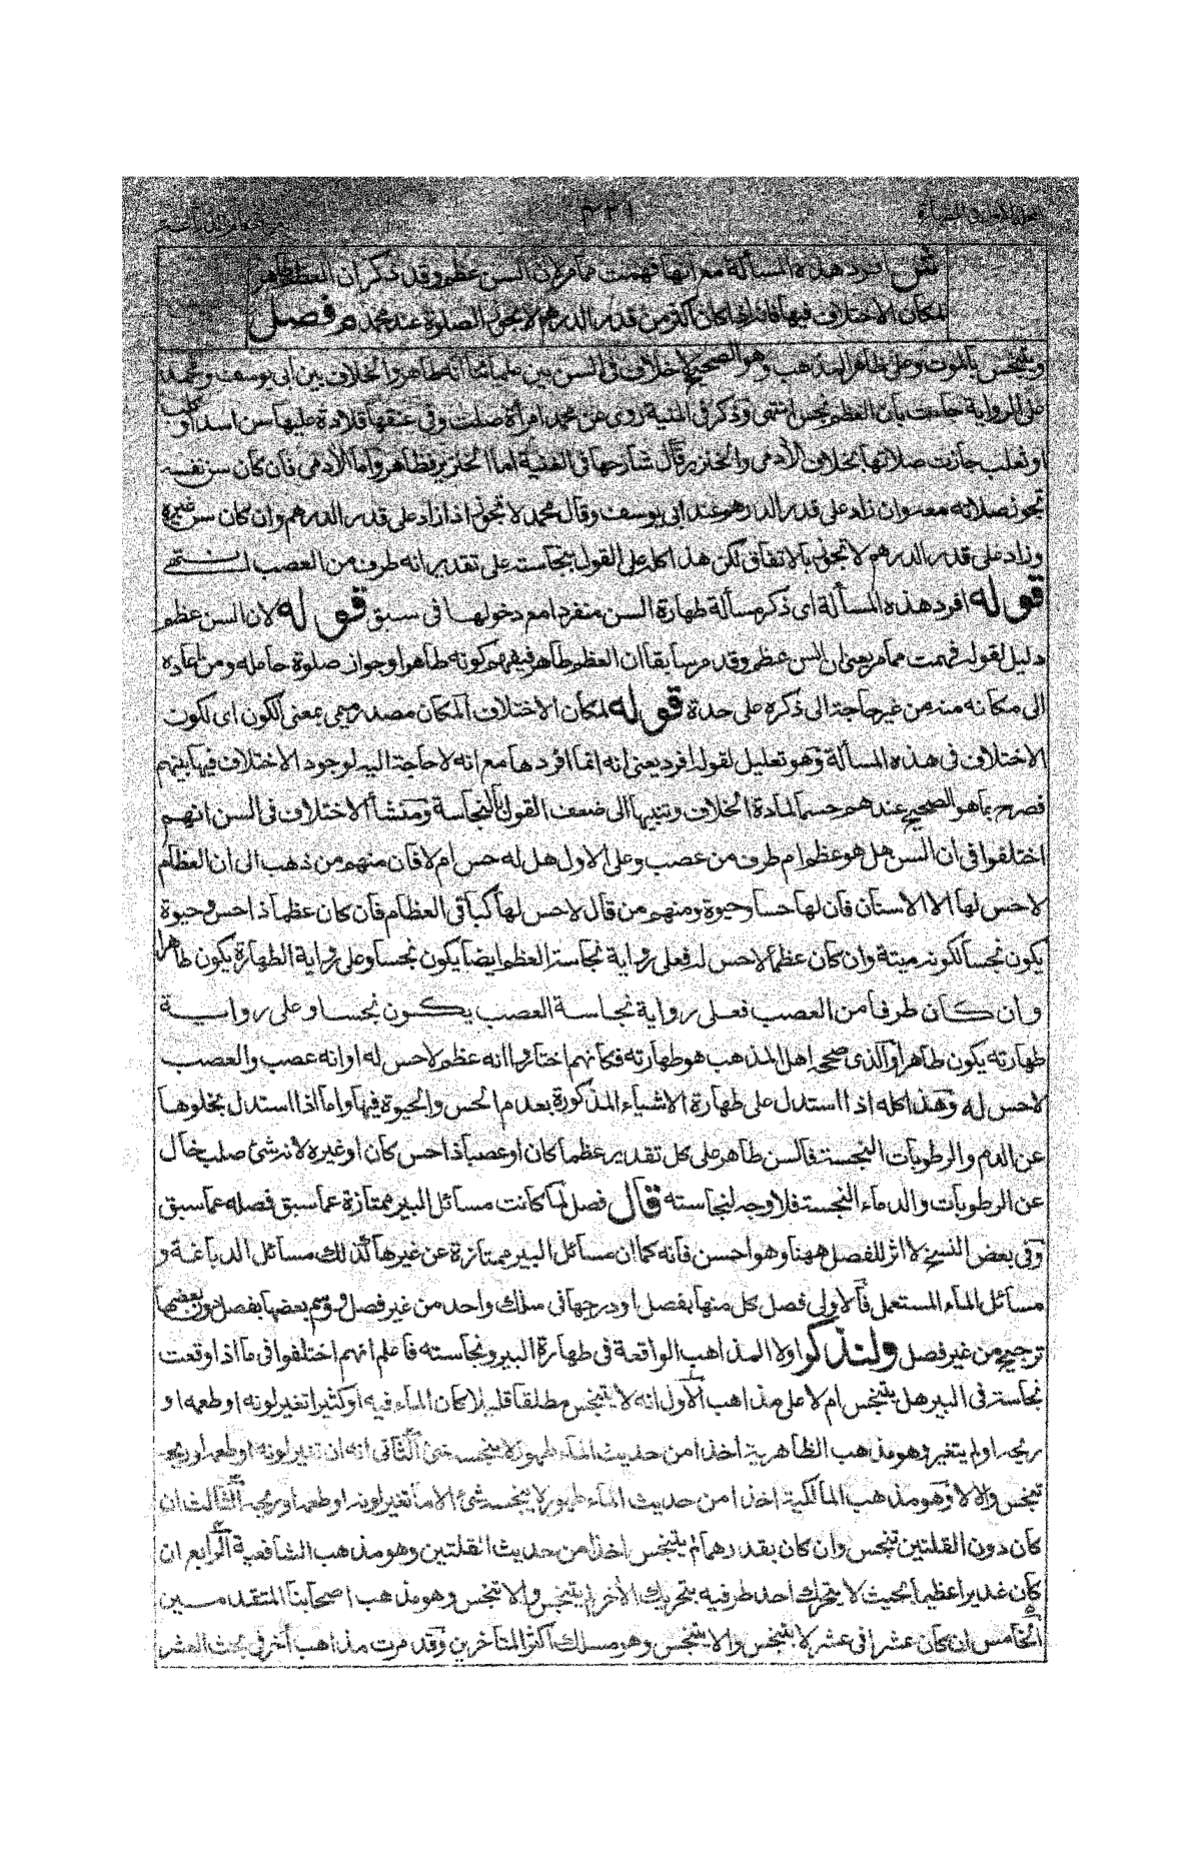 ٤٢٩
ش افرد هذه المسألة مع انها فهمت مما مر لان السن عظم وقد ذكر ان العظم طاهر
لمكان الاختلاف فيها فانه اذا كان اكثر من قدر الدرهم لا تجوز الصلوة عند محمد م فصل
ويتنجس بالموت وعلى ظاهر المذهب وهو الصحيح لا خلاف في السن بين علمائنا انه طاهر والخلاف بين ابي يوسف ومحمد
على الرواية جاءت بان العظم نجس انتهى وذكر في المنية روى عن محمد امرأة صلت وفي عنقها قلادة عليها سن اسد او كلب
او ثعلب جازت صلاتها بخلاف الآدمي والخنزير قال شارحها في الغنية اما الخنزير فظاهر واما الآدمي فان كان سن نفسه
تجوز صلاته معه وان زاد على قدر الدرهم عند ابي يوسف وقال محمد لا تجوز اذا زاد على قدر الدرهم وان كان سن غيره
وزاد على قدر الدرهم لا تجوز بالاتفاق لكن هذا كله على القول بنجاسته على تقدير انه طرف من العصب انتهى
قوله افرد هذه المسألة اى ذكر مسألة طهارة السن منفردا مع دخولها فى سبق قوله لان السن عظم
دليل لقوله فهمت مما مر يعنى ان السن عظم وقد مر سابقا ان العظم طاهر فيفهم كونه طاهرا وجواز صلوة حامله ومن اعاده
الى مكانه منه من غير حاجة الى ذكره على حدة قوله لمكان الاختلاف المكان مصدر ميمى بمعنى الكون اى لكون
الاختلاف فى هذه المسألة وهو تعليل لقوله افرد يعنى انه انما افردها مع انه لا حاجة اليه لوجود الاختلاف فيها بينهم
فصرح بما هو الصحيح عندهم حسما لمادة الخلاف وتنبيها الى ضعف القول بالنجاسة ومنشأ الاختلاف فى السن انهم
اختلفوا فى ان السن هل هو عظم ام طرف من عصب وعلى الاول هل له حس ام لا فان منهم من ذهب الى ان العظام
لا حس لها الا الاسنان فان لها حسا وحيوة ومنهم من قال لا حس لها كباقى العظام فان كان عظما ذا حس وحيوة
يكون نجسا لكونه ميتة وان كان عظما لا حس له فعلى رواية نجاسة العظم ايضا يكون نجسا وعلى رواية الطهارة يكون طاهرا
وان كان طرفا من العصب فعلى رواية نجاسة العصب يكون نجسا وعلى رواية
طهارته يكون طاهرا والذى صححه اهل المذهب هو طهارته فكانهم اختاروا انه عظم لا حس له او انه عصب والعصب
لا حس له وهذا كله اذا استدل على طهارة الاشياء المذكورة بعدم الحس والحيوة فيها واما اذا استدل بخلوها
عن الدم والرطوبات النجسة فالسن طاهر على كل تقدير عظما كان او عصبا ذا حس كان او غيره لانه شئ صلب خال
عن الرطوبات والدماء النجسة فلا وجه لنجاسته قال فصل لما كانت مسائل البير ممتازة عما سبق فصله عما سبق
وفى بعض النسخ لا اثر للفصل ههنا وهو احسن فانه كما ان مسائل البير ممتازة عن غيرها كذلك مسائل الدباغة و
مسائل الماء المستعمل فالاولى فصل كل منها بفصل او درجها فى سلك واحد من غير فصل ووسم بعضها بفصل دون بعضها
ترجيح من غير فصل ولنذكر اولا المذاهب الواقعة فى طهارة البير ونجاسته فاعلم انهم اختلفوا فى ما اذا وقعت
نجاسة فى البير هل يتنجس ام لا على مذاهب الاول انه لا يتنجس مطلقا قليلا كان الماء فيه او كثيرا تغير لونه او طعمه او
ريحه او لم يتغير وهو مذهب الظاهرية اخذا من حديث الماء طهور لا ينجسه شئ الثانى انه ان تغير لونه او طعمه او ريحه
تنجس والا لا وهو مذهب المالكية اخذا من حديث الماء طهور لا ينجسه شئ الا ما تغير لونه او طعمه او ريحه الثالث ان
كان دون القلتين تنجس وان كان بقدرهما لم يتنجس اخذا من حديث القلتين وهو مذهب الشافعية الرابع ان
كان غديرا عظيما بحيث لا يتحرك احد طرفيه بتحريك الآخر لم يتنجس والا تنجس وهو مذهب اصحابنا المتقدمين
الخامس ان كان عشرا فى عشر لا يتنجس والا يتنجس وهو مسلك اكثر المتأخرين وقد مرت مذاهب أخر فى بحث العشر